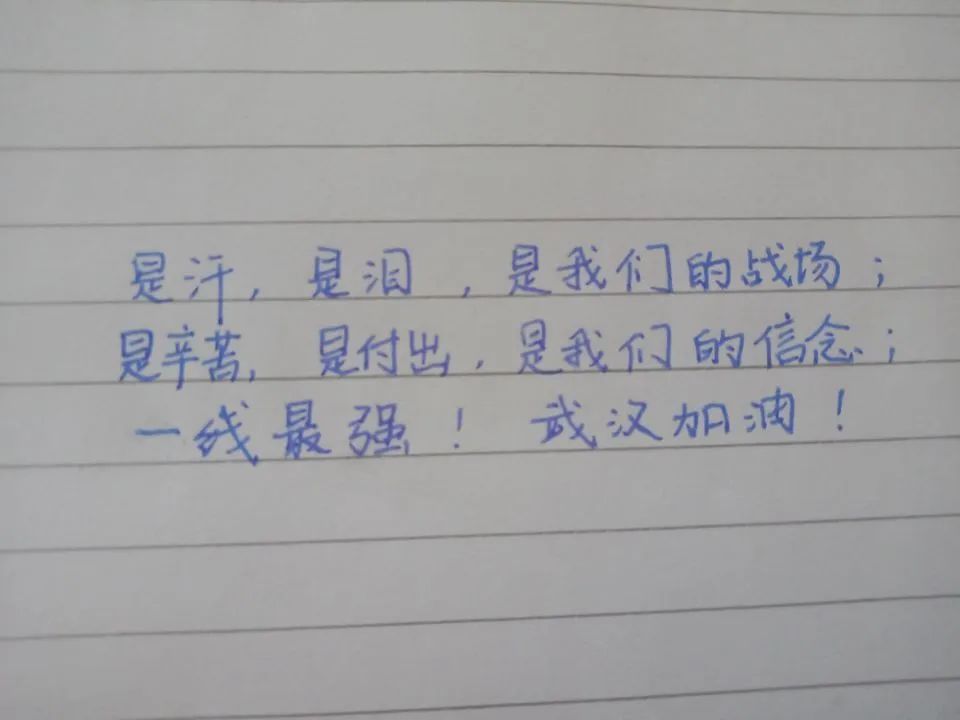 是汗，是泪，是我们的战场；
是辛苦，是付出，是我们的信念；
一线最强！武汉加油！